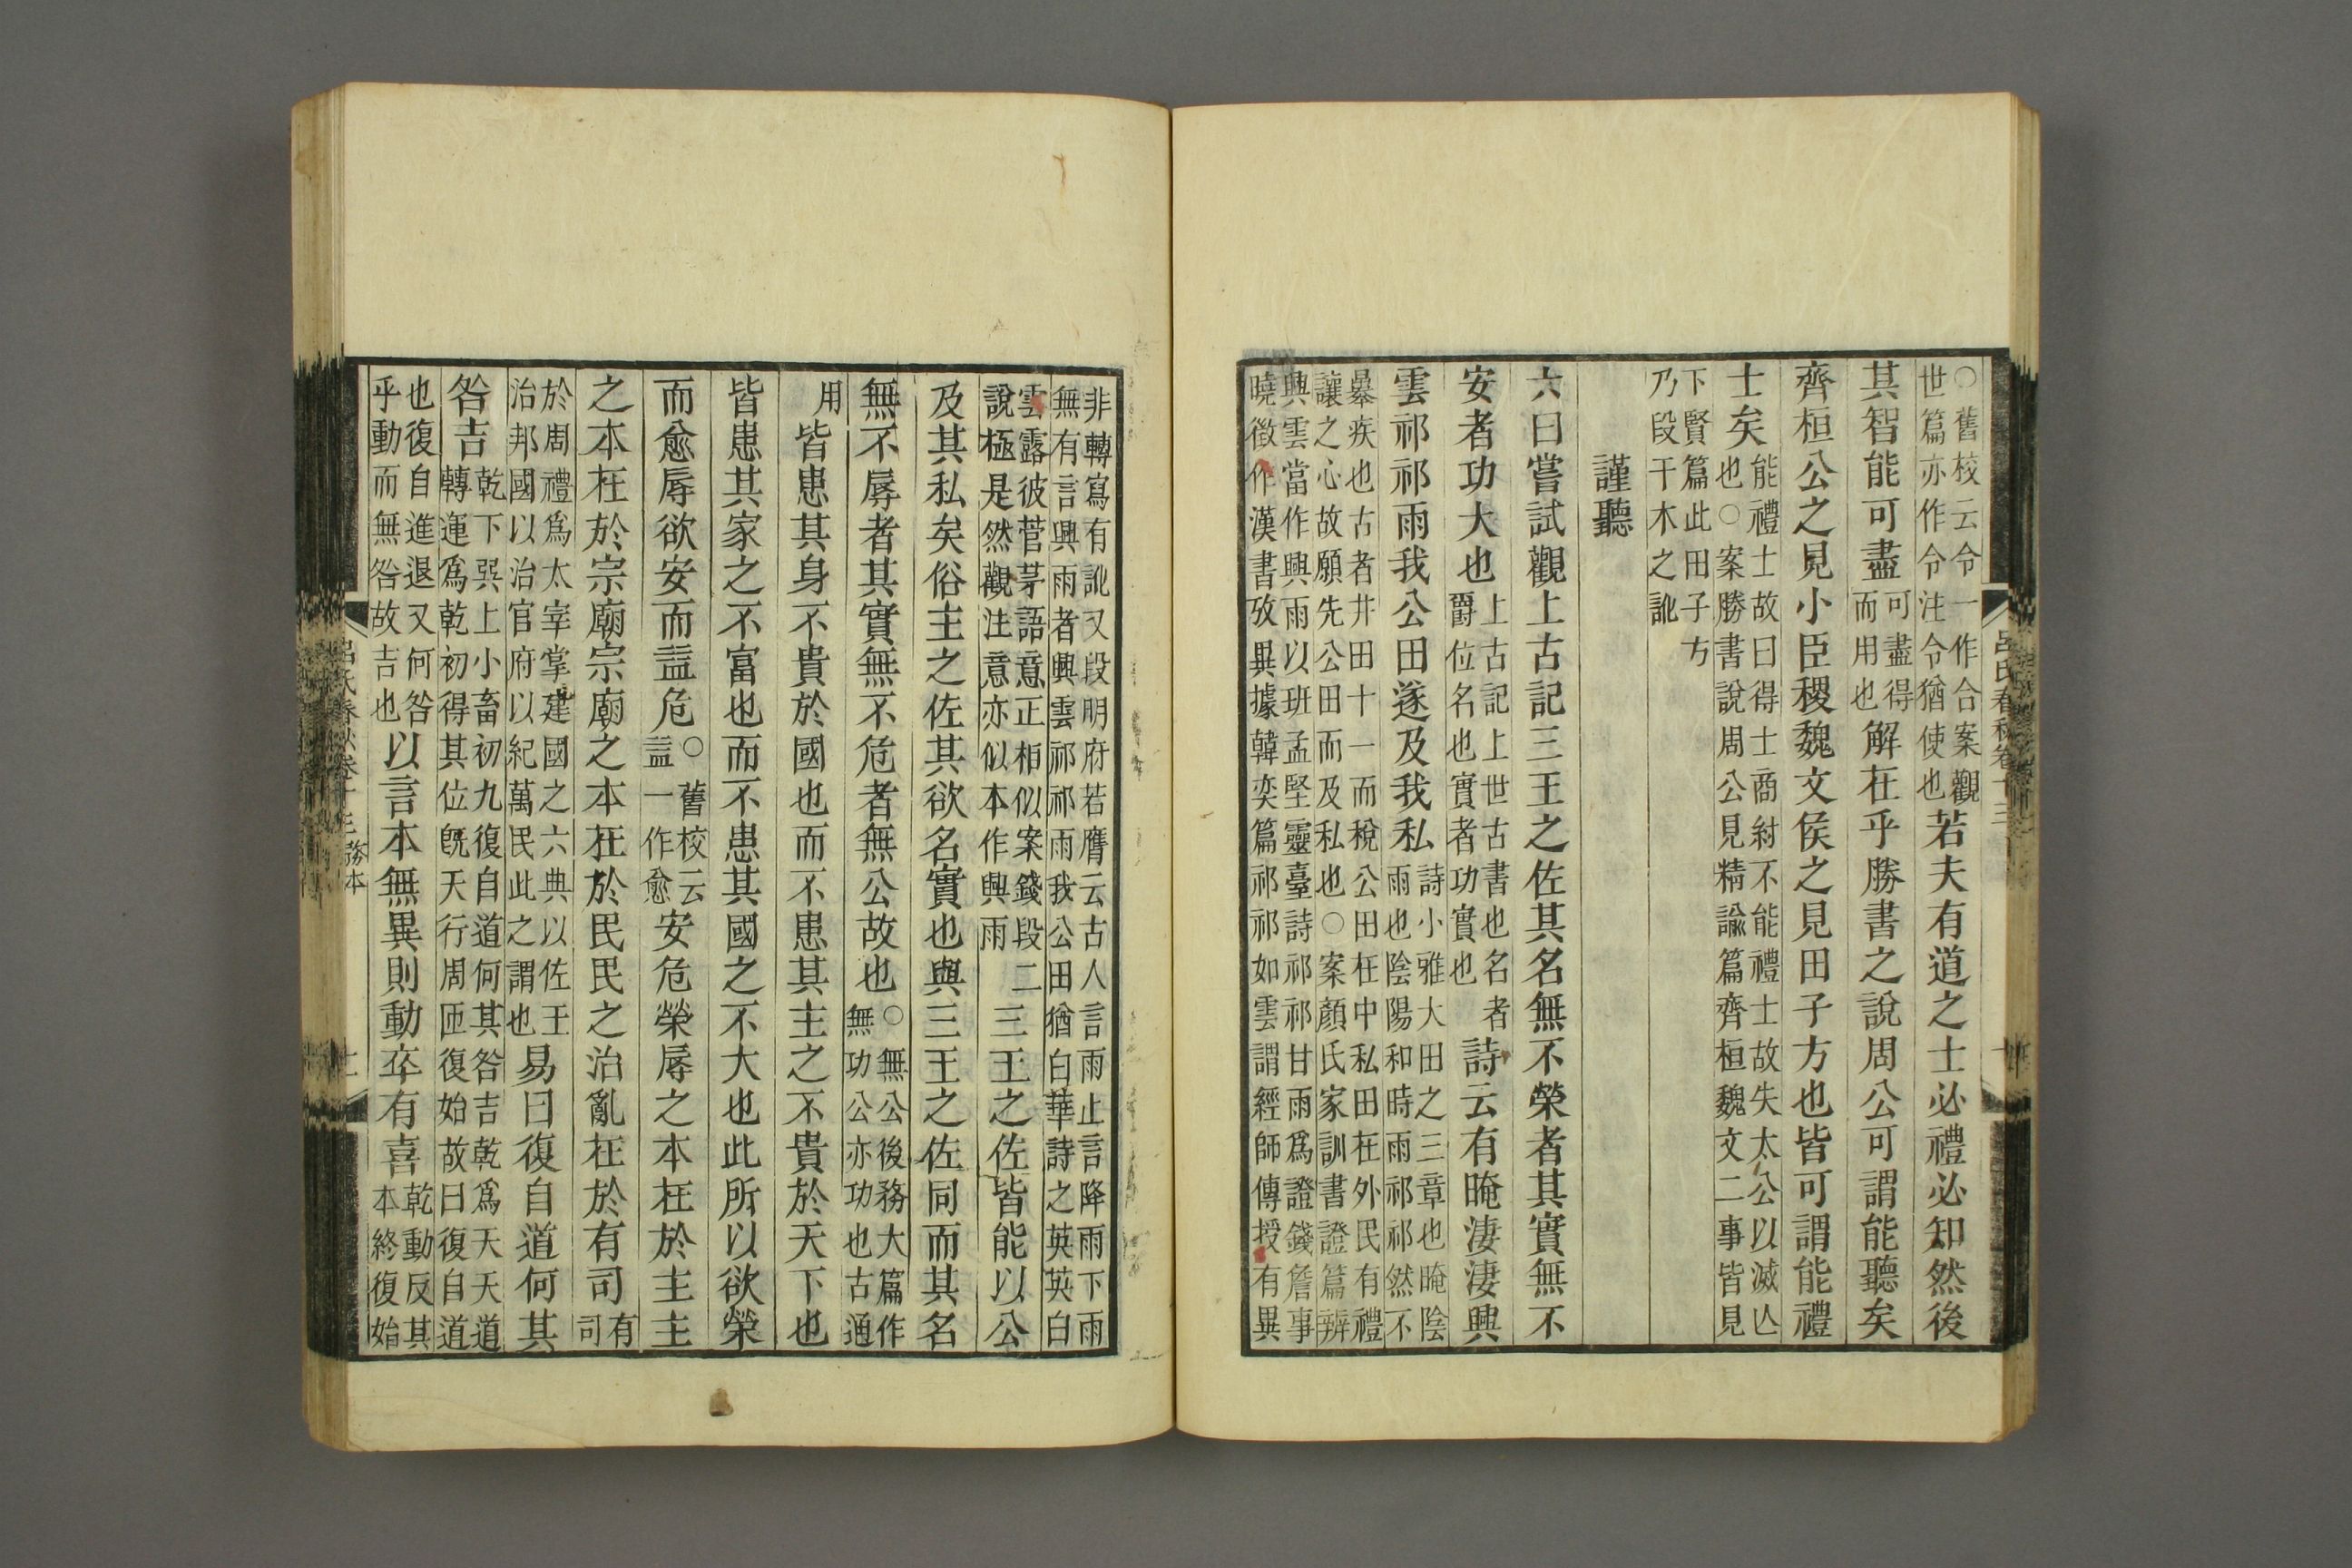 ○舊校云令一作合案觀世篇亦作令注令猶使也若夫有道之士必禮必知然後
其智能可盡可盡得而用也解在乎勝書之說周公可謂能聽矣
齊桓公之見小臣稷魏文侯之見田子方也皆可謂能禮
士矣能禮士故曰得士商紂不能禮士故失太公以滅亾也○案勝書說周公見精諭篇齊桓魏文二事皆見
下賢篇此田子方乃段干木之訛
謹聽
六曰嘗試觀上古記三王之佐其名無不榮者其實無不
安者功大也上古記上世古書也名者爵位名也實者功實也詩云有晻淒淒興
雲祁祁雨我公田遂及我私詩小雅大田之三章也晻陰雨也陰陽和時雨祁祁然不
暴疾也古者井田十一而稅公田在中私田在外民有禮讓之心故願先公田而及私也○案顏氏家訓書證篇辨
興雲當作興雨以班孟堅靈臺詩祁祁甘雨爲證錢詹事曉徵作漢書攷異據韓奕篇祁祁如雲謂經師傳授有異
呂氏春秋卷十三
非轉寫有訛又段明府若膺云古人言雨止言降雨下雨無有言興雨者興雲祁祁雨我公田猶白華詩之英英白
雲露彼菅茅語意正相似案錢段二說極是然觀注意亦似本作興雨三王之佐皆能以公
及其私矣俗主之佐其欲名實也與三王之佐同而其名
無不辱者其實無不危者無公故也○無公後務大篇作無功公亦功也古通
用皆患其身不貴於國也而不患其主之不貴於天下也
皆患其家之不富也而不患其國之不大也此所以欲榮
而愈辱欲安而益危○舊校云益一作愈安危榮辱之本在於主主
之本在於宗廟宗廟之本在於民民之治亂在於有司有司
於周禮爲太宰掌建國之六典以佐王治邦國以治官府以紀萬民此之謂也易曰復自道何其
咎吉乾下巽上小畜初九復自道何其咎吉乾爲天天道轉運爲乾初得其位旣天行周匝復始故曰復自道
也復自進退又何咎乎動而無咎故吉也以言本無異則動卒有喜乾動反其本終復始
呂氏春秋卷十三 務本
十一